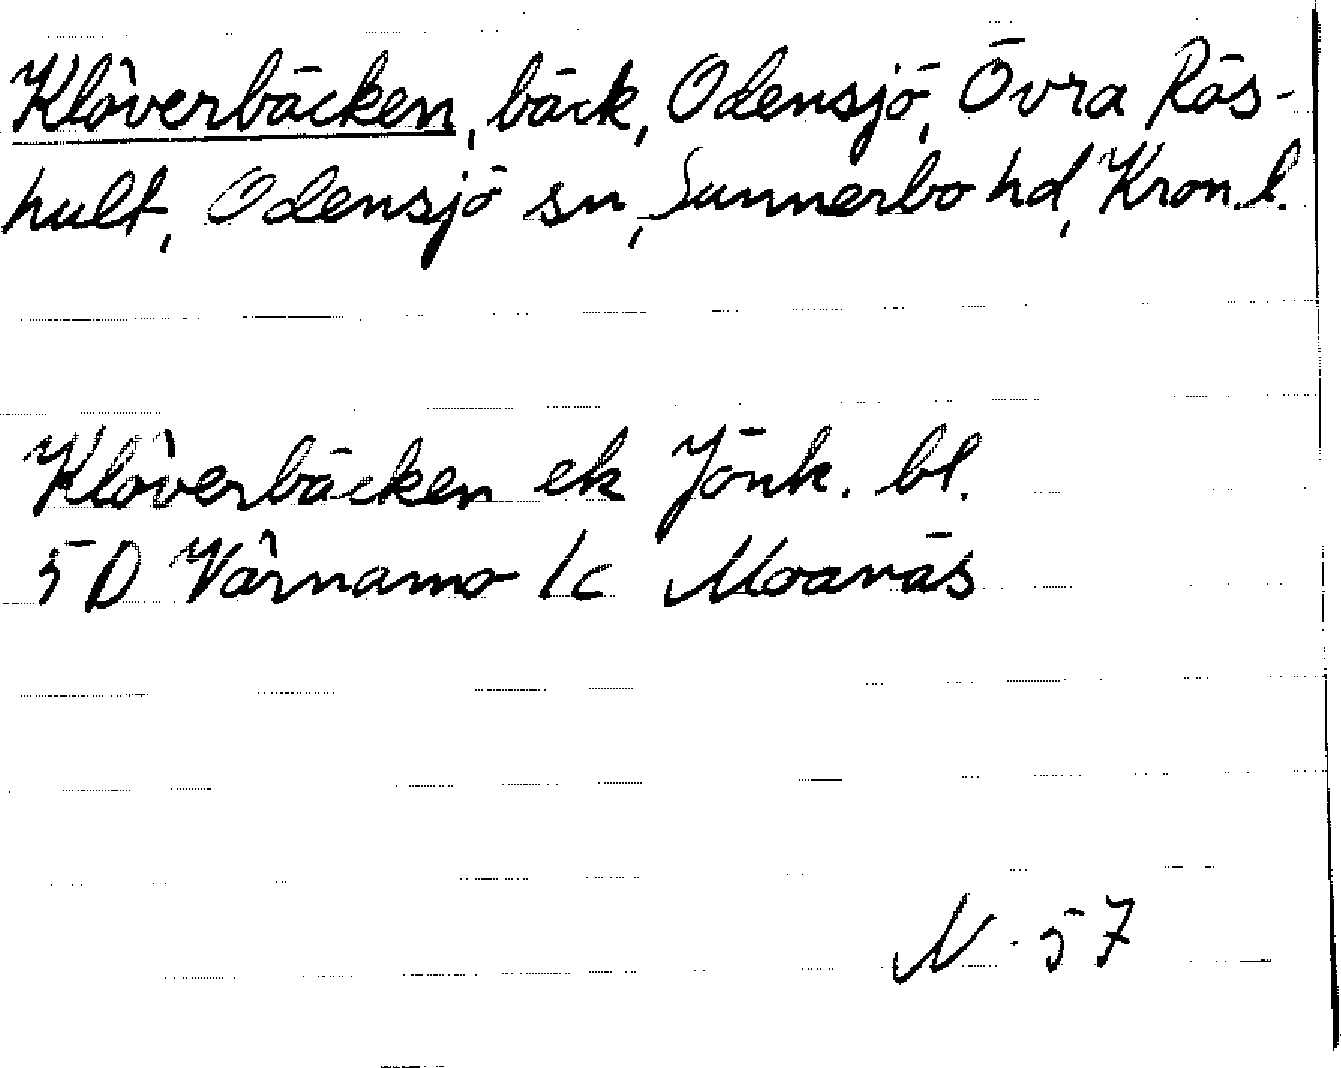 Klöverbäcken, bäck, Odensjö, Övra Rös-
hult, Odensjö sn, Sunnerbo hd, Kron.l.
Klöverbäcken ek Jönk. bl.
5D Värnamo 1c Moanäs
N. 57